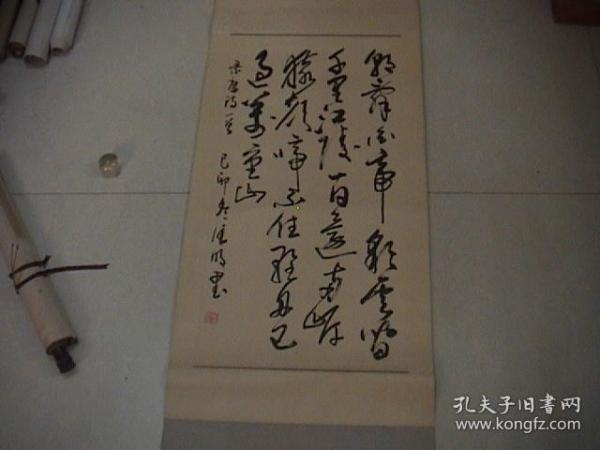 朝辞白帝彩云间
千里江陵一日还两岸
猿声啼不住轻舟已
过万重山
录唐诗一首 己卯冬 明书
孔夫子旧书网
www.kongfz.com